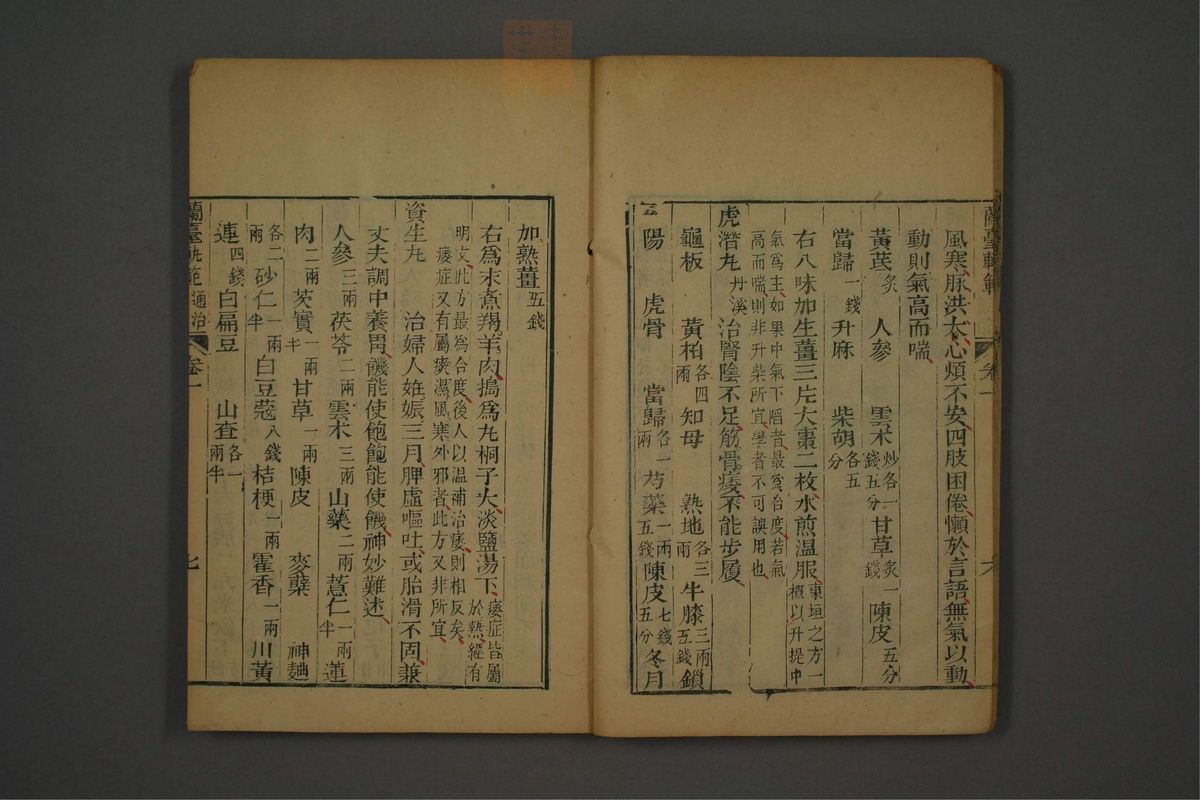 蘭臺軌範
卷一
六
風寒脉洪大心煩不安四肢困倦懶於言語無氣以動
動則氣高而喘
黃芪炙 人參 雲朮炒各一錢五分 甘草炙一錢 陳皮五分
當歸一錢 升麻 柴胡各五分
右八味加生薑三片大棗二枚水煎温服東垣之方一槪以升提中
氣爲主如果中氣下陷者最爲合度若氣
高而喘則非升柴所宜學者不可誤用也
虎潛丸丹溪 治腎陰不足筋骨痿不能步履
龜板 黃柏各四兩 知母 熟地各三兩 牛膝三兩五錢 鎖
陽 虎骨 當歸各一兩 芍藥一兩五錢 陳皮七錢五分 冬月
加熟薑五錢
右爲末煮羯羊肉搗爲丸桐子大淡鹽湯下痿症皆屬於熱經有
明文此方最爲合度後人以温補治痿則相反矣
痿症又有屬痰濕風寒外邪者此方又非所宜
資生丸 治婦人姙娠三月脾虛嘔吐或胎滑不固兼
丈夫調中養胃饑能使飽飽能使饑神妙難述
人參三兩 茯苓二兩 雲朮三兩 山藥二兩 薏仁一兩半 蓮
肉二兩 芡實一兩半 甘草一兩 陳皮 麥蘗 神麯
各二兩 砂仁一兩半 白豆蔻八錢 桔梗一兩 霍香一兩 川黃
連四錢 白扁豆 山查各一兩半
蘭臺軌範
通治
卷一
七